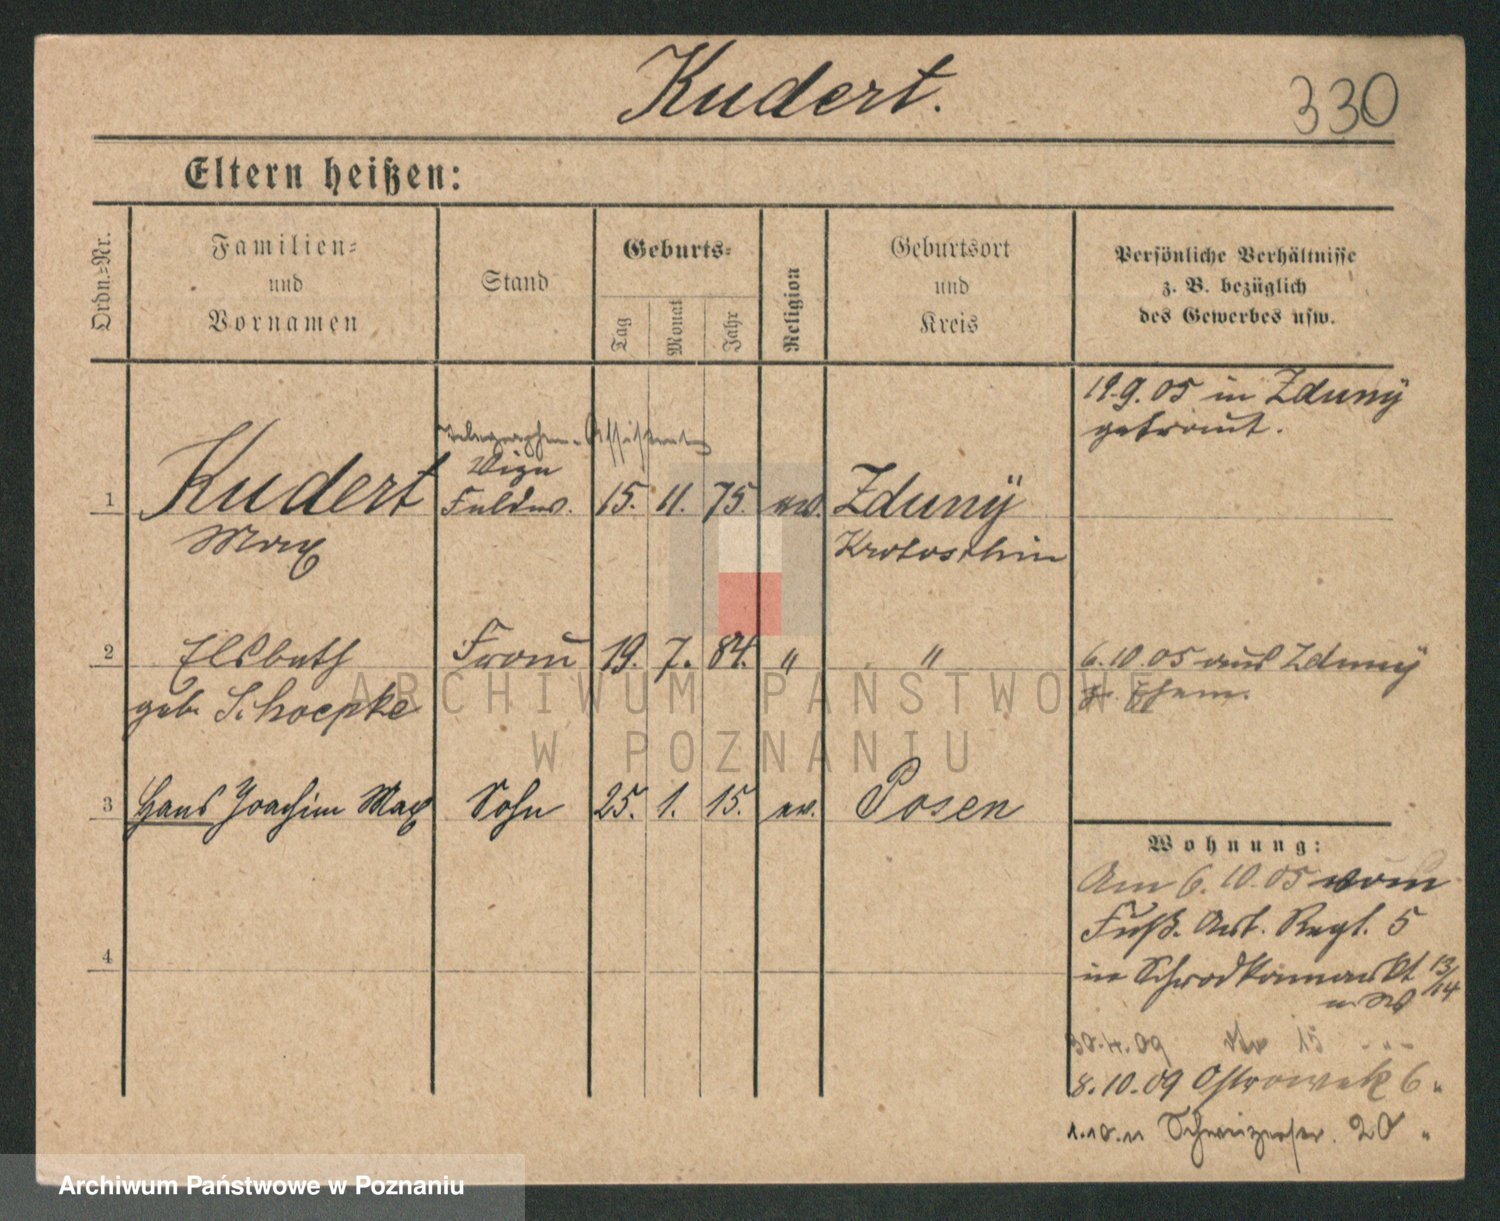 Kudert.
330
Eltern heißen:
Ordn.-Nr.
Familien-
und
Vornamen
Stand
Geburts-
Tag
Monat
Jahr
Religion
Geburtsort
und
Kreis
Persönliche Verhältnisse
z. B. bezüglich
des Gewerbes usw.
19.9.05 in Zduny
getraut.
Telegraphen-Assistent
Vize
1 Kudert Feldw. 15. 11. 75. ev. Zduny
Max Krotoschin
2 Elsbeth Frau 19. 7. 84. " " 6.10.05 aus Zduny
geb. Schoepke z. Ehem.
3 Hans Joachim Max Sohn 25. 1. 15. ev. Posen
Wohnung:
Am 6.10.05 vom
Fuß. Art. Regt. 5
in Schrodkamarkt 13/14
4
30.4.09 15
8.10.09 Ostrowek 6 "
1.10.11 20 "
ARCHIWUM PAŃSTWOWE
W POZNANIU
Archiwum Państwowe w Poznaniu